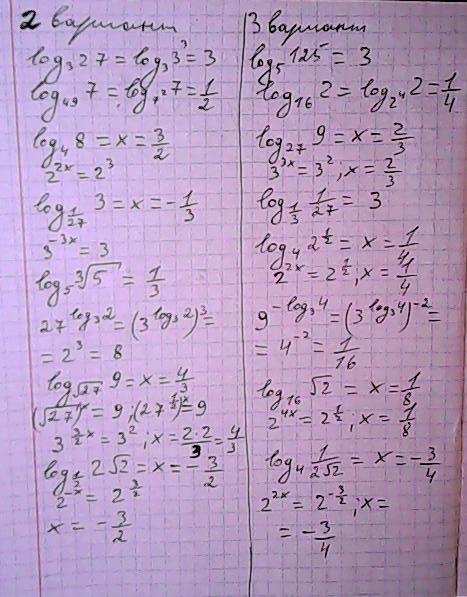 2 вариант
log₃27 = log₃3³ = 3
log₄₉7 = log₇²7 = 1/2
log₄8 = x = 3/2
2²ˣ = 2³
log_{1/27} 3 = x = -1/3
3⁻³ˣ = 3
log₅∛5 = 1/3
27^{log₃2} = (3^{log₃2})³ =
= 2³ = 8
log_{√27} 9 = x = 4/3
(√27)ˣ = 9; (27^{1/2})ˣ = 9
3^{3/2 x} = 3²; x = 2·2/3 = 4/3
log_{1/2} 2√2 = x = -3/2
2⁻ˣ = 2^{3/2}
x = -3/2
3 вариант
log₅125 = 3
log₁₆2 = log_{2⁴}2 = 1/4
log₂₇9 = x = 2/3
3³ˣ = 3²; x = 2/3
log_{1/3} 1/27 = 3
log₄2^{1/2} = x = 1/4
2²ˣ = 2^{1/2}; x = 1/4
9^{-log₃4} = (3^{log₃4})⁻² =
= 4⁻² = 1/16
log₁₆√2 = x = 1/8
2⁴ˣ = 2^{1/2}; x = 1/8
log₄ 1/(2√2) = x = -3/4
2²ˣ = 2^{-3/2}; x =
= -3/4